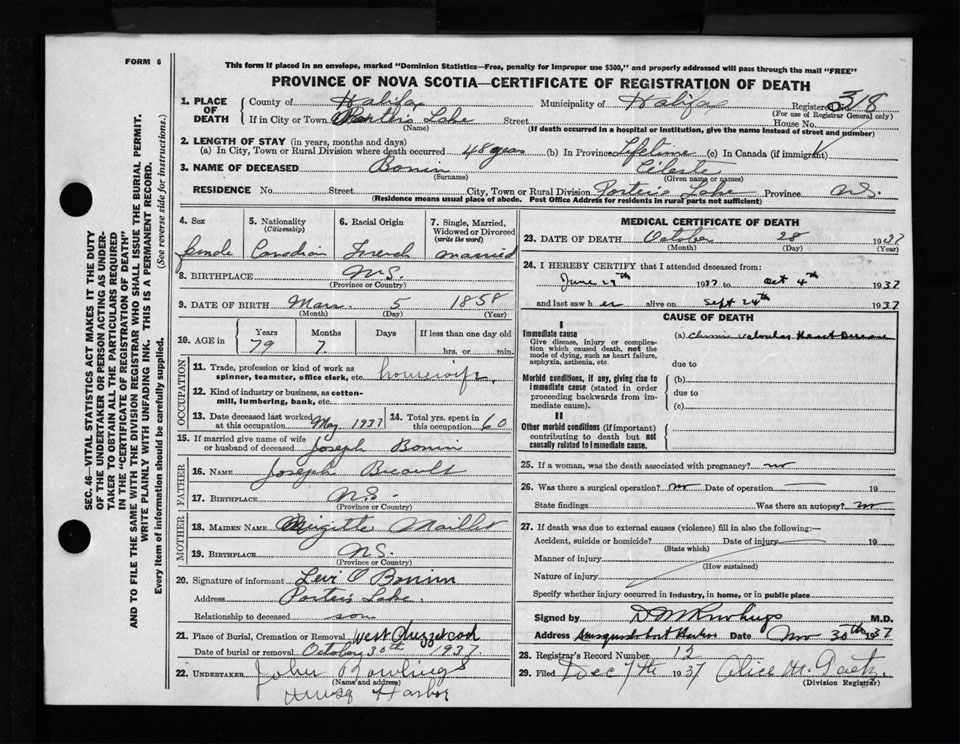 FORM 6
This form if placed in an envelope, marked "Dominion Statistics—Free, penalty for improper use $300," and properly addressed will pass through the mail "FREE"
PROVINCE OF NOVA SCOTIA—CERTIFICATE OF REGISTRATION OF DEATH
SEC. 46—VITAL STATISTICS ACT MAKES IT THE DUTY
OF THE UNDERTAKER OR PERSON ACTING AS UNDER-
TAKER TO OBTAIN ALL THE PARTICULARS REQUIRED
IN THE "CERTIFICATE OF REGISTRATION OF DEATH"
AND TO FILE THE SAME WITH THE DIVISION REGISTRAR WHO SHALL ISSUE THE BURIAL PERMIT.
WRITE PLAINLY WITH UNFADING INK. THIS IS A PERMANENT RECORD.
Every item of information should be carefully supplied. (See reverse side for instructions.)
1. PLACE OF DEATH
County of Halifax Municipality of Halifax Registered No. 318
(For use of Registrar General only)
If in City or Town Porters Lake Street House No.
(Name) (If death occurred in a hospital or institution, give the name instead of street and number)
2. LENGTH OF STAY (in years, months and days)
(a) In City, Town or Rural Division where death occurred 48 years (b) In Province Lifetime (c) In Canada (if immigrant)
3. NAME OF DECEASED Bonin Celeste
(Surname) (Given name or names)
RESIDENCE No. Street City, Town or Rural Division Porters Lake Province N.S.
(Residence means usual place of abode. Post Office Address for residents in rural parts not sufficient)
4. Sex 5. Nationality (Citizenship) 6. Racial Origin 7. Single, Married, Widowed or Divorced (write the word)
female Canadian French married
8. BIRTHPLACE N.S.
(Province or Country)
9. DATE OF BIRTH Mar. 5 1858
(Month) (Day) (Year)
10. AGE in Years Months Days If less than one day old
79 7 hrs. or min.
OCCUPATION
11. Trade, profession or kind of work as spinner, teamster, office clerk, etc. housewife
12. Kind of industry or business, as cotton-mill, lumbering, bank, etc.
13. Date deceased last worked at this occupation May 1937 14. Total yrs. spent in this occupation 60
15. If married give name of wife or husband of deceased Joseph Bonin
FATHER
16. NAME Joseph
17. BIRTHPLACE N.S.
(Province or Country)
MOTHER
18. MAIDEN NAME Brigitte Maillet
19. BIRTHPLACE N.S.
(Province or Country)
20. Signature of informant Levi O Bonin
Address Porters Lake.
Relationship to deceased son
21. Place of Burial, Cremation or Removal West Chezzetcook
Date of burial or removal October 30th 1937.
22. UNDERTAKER John Rowlings
(Name and address)
Musq Harbor
MEDICAL CERTIFICATE OF DEATH
23. DATE OF DEATH October 28 1937
(Month) (Day) (Year)
24. I HEREBY CERTIFY that I attended deceased from:
June 29th 1937 to Oct 4th 1937
and last saw her alive on Sept 24th 1937
CAUSE OF DEATH
I
Immediate cause
Give disease, injury or complication which caused death, not the mode of dying, such as heart failure, asphyxia, asthenia, etc.
(a) chronic valvular Heart Disease
due to
Morbid conditions, if any, giving rise to immediate cause (stated in order proceeding backwards from immediate cause).
(b)
due to
(c)
II
Other morbid conditions (if important) contributing to death but not causally related to immediate cause.
25. If a woman, was the death associated with pregnancy? no
26. Was there a surgical operation? no Date of operation — 19
State findings Was there an autopsy? no
27. If death was due to external causes (violence) fill in also the following:—
Accident, suicide or homicide? Date of injury 19
(State which)
Manner of injury
(How sustained)
Nature of injury
Specify whether injury occurred in industry, in home, or in public place
Signed by D M Rowlings M.D.
Address Musquodoboit Harbor Date Nov 30th 1937
28. Registrar's Record Number 12
29. Filed Dec 7th 1937 Alice M. Gaetz.
(Division Registrar)